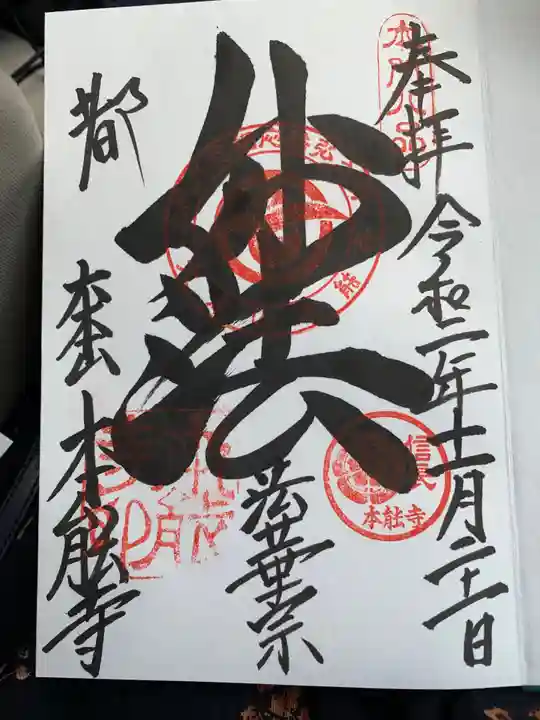 奉拝 令和二年十一月二十一日
妙法
法華宗
都
大本山 本能寺
信長
本能寺